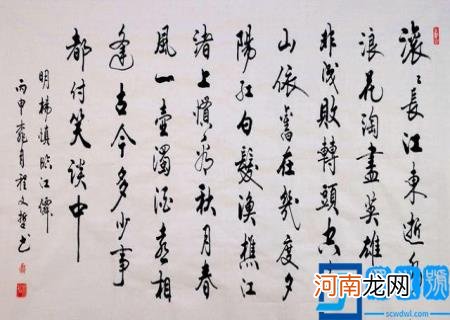 滚〻長江東逝水
浪花淘盡英雄
非成敗轉頭空
山依舊在幾度夕
陽紅白髮漁樵江
渚上慣看秋月春
風一壺濁酒喜相
逢古今多少事
都付笑談中
明楊慎臨江僊
丙申桃月程文哲书
河南龙网
scwdwl.com